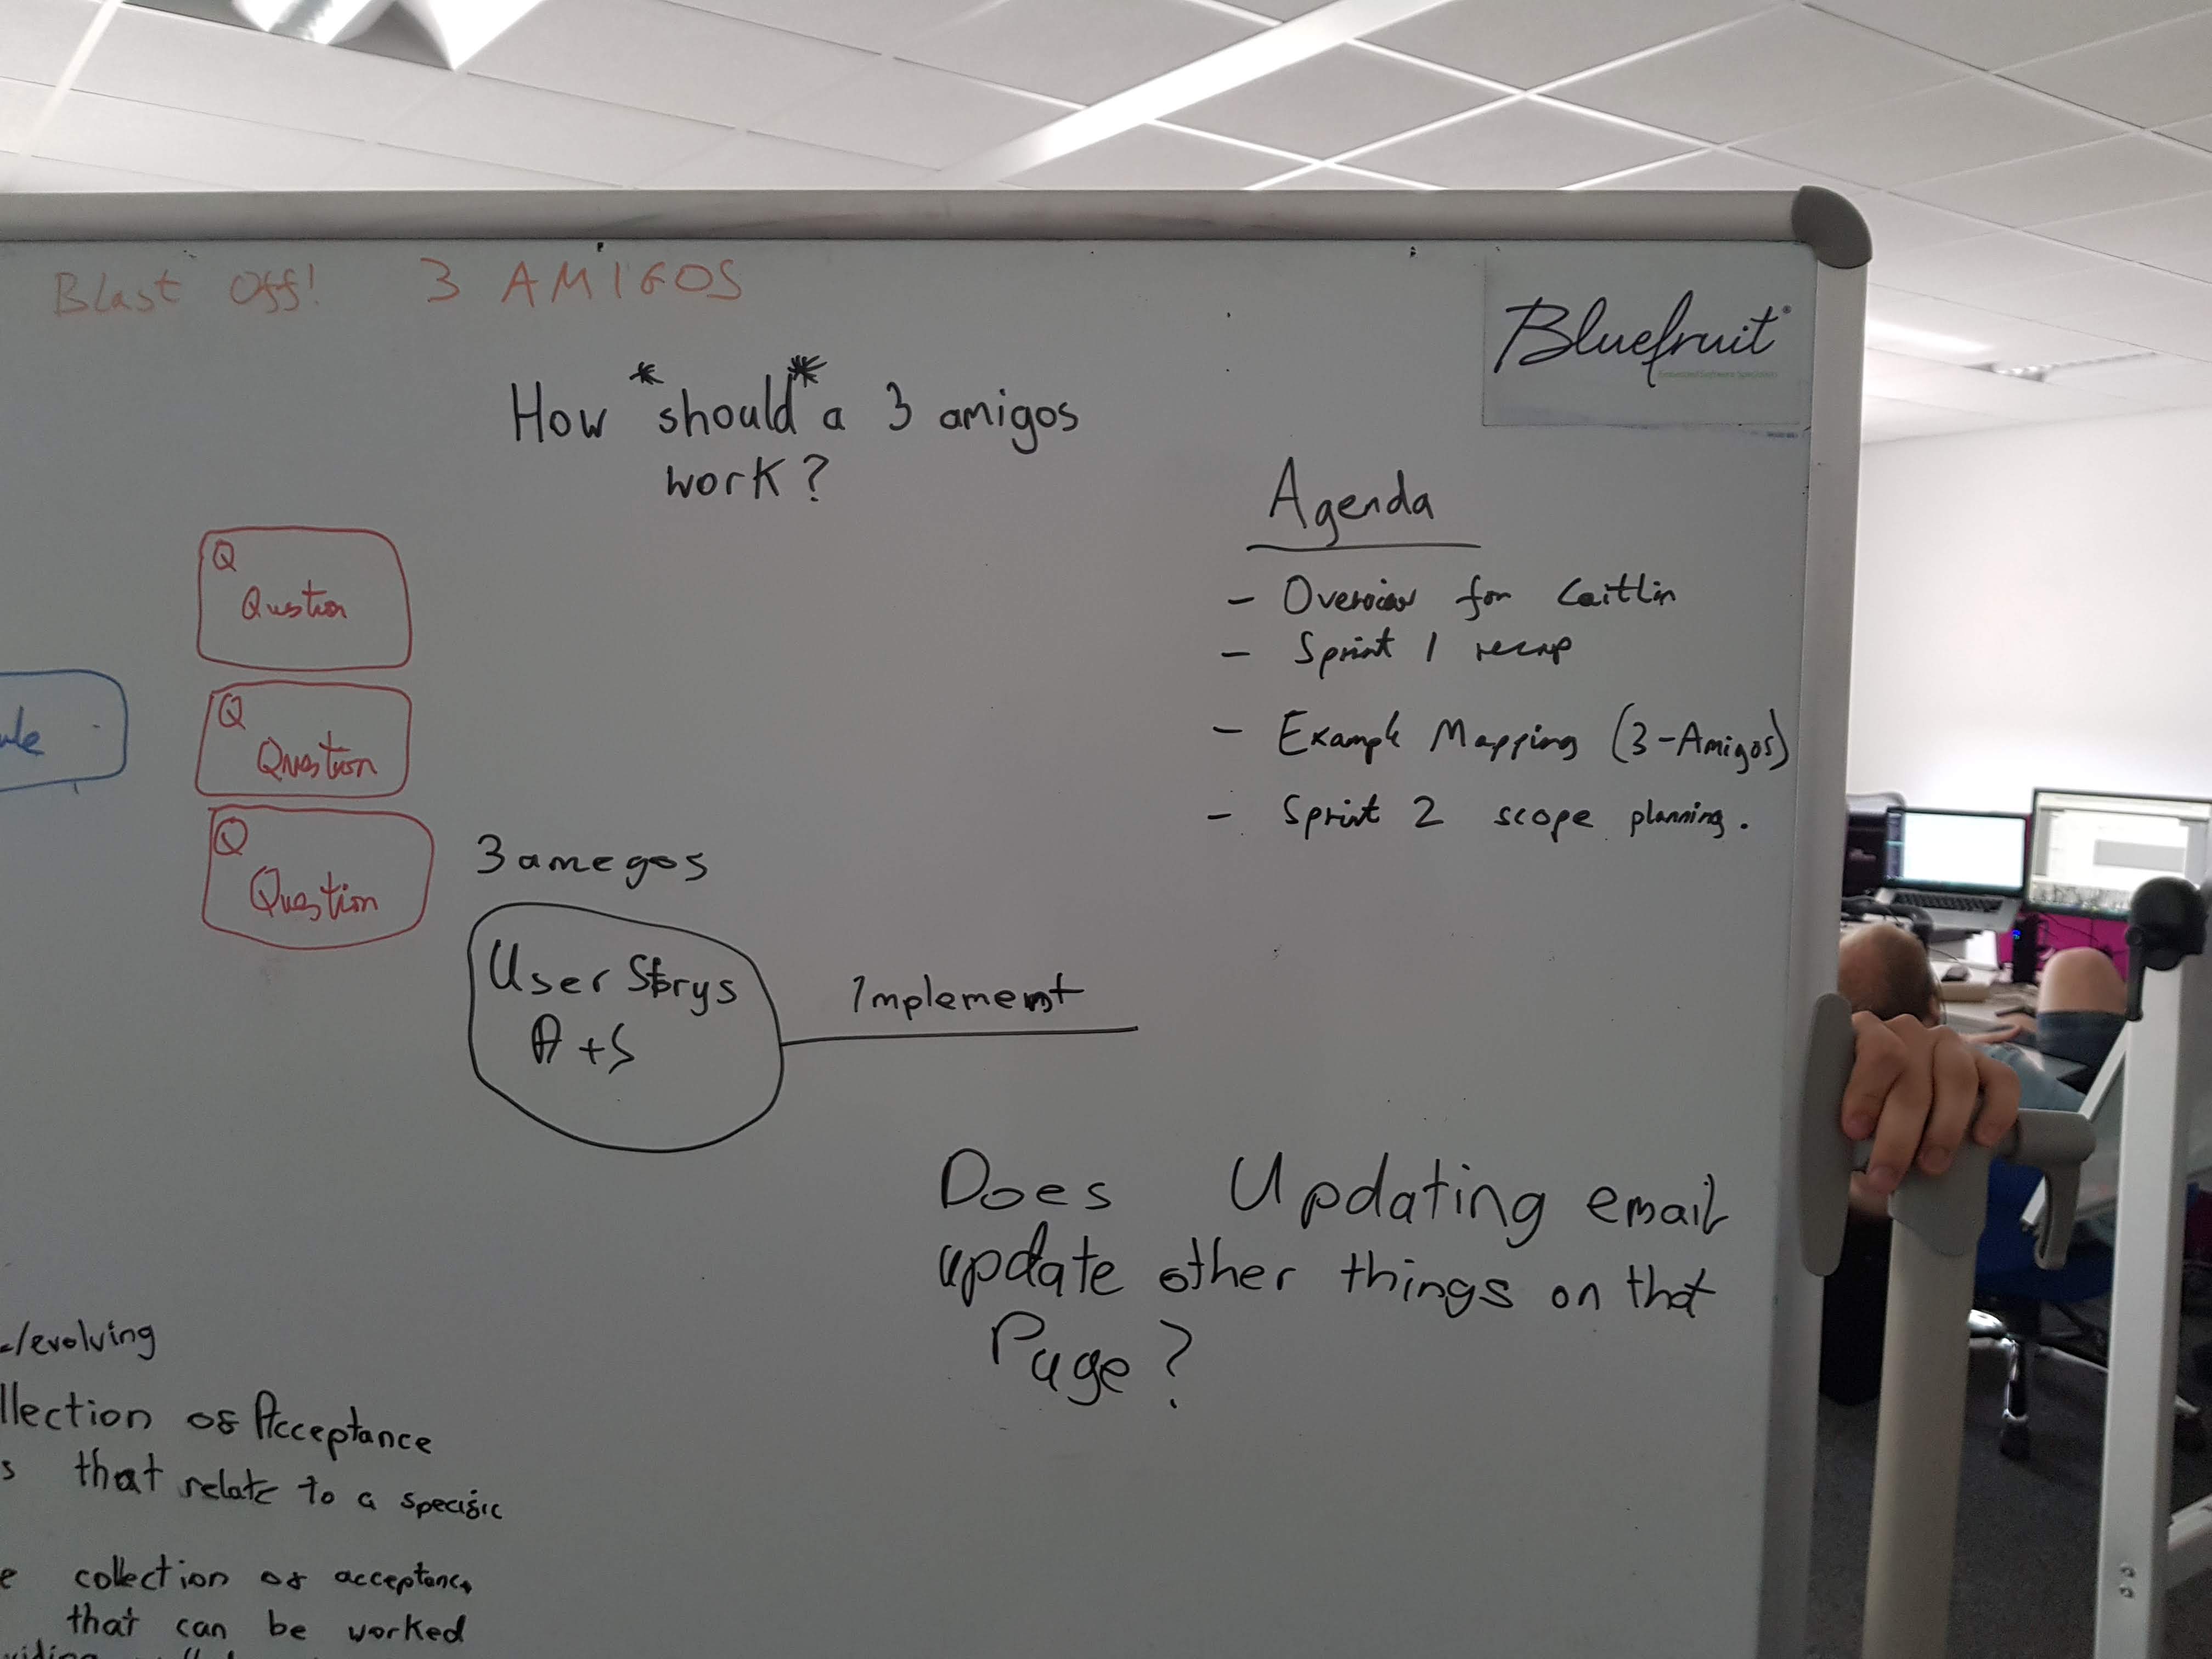 Blast Off! 3 AMIGOS
Bluefruit
How *should* a 3 amigos
work?
Agenda
- Overview for Caitlin
- Sprint 1 recap
- Example Mapping (3-Amigos)
- Sprint 2 scope planning.
Q
Question
Q
Question
Q
Question
3 amegos
User Storys
A + S
Implement
Does Updating email
update other things on that
Page?
/evolving
llection of Acceptance
s that relate to a specific
e collection of acceptance
that can be worked